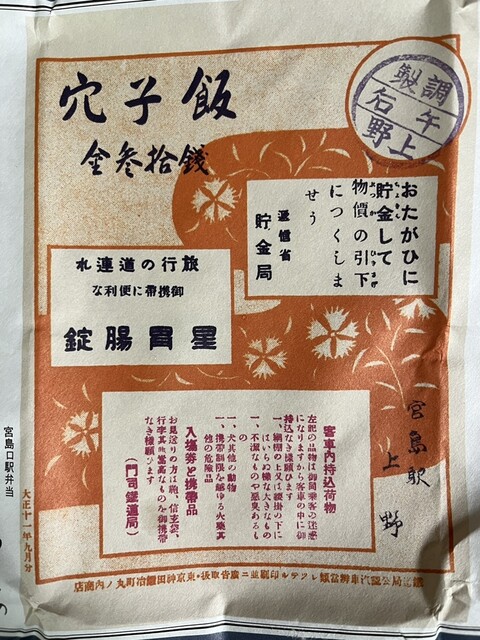 穴子飯
金参拾銭
調製
午
石
上野
おたがひに
貯金して
物價の引下
につくしま
せう
遞信省
貯金局
旅行の道連れ
御携帶に便利な
星胃腸錠
宮島駅
上野
客車内持込荷物
左記の品物は御同乘客の迷惑
になりますから客車の中に御
持込なき様願ひます
一、網棚の上又は腰掛の下に
はいらぬ様な大きなもの
一、不潔なものや惡臭あるも
の
一、携帶制限を越ゆる火藥其
他の危險品
一、犬其他の動物
入場券と携帶品
お見送りの方は鞄、信玄袋、
行李其他嵩高なものを御携帶
なき様願ひます
（門司鐵道局）
鐵道局公認汽車辨當類レツテル印刷並ニ廣告取扱・東京神田鍛冶町丸ノ内商店
宮島口駅弁当
大正十一年九月分